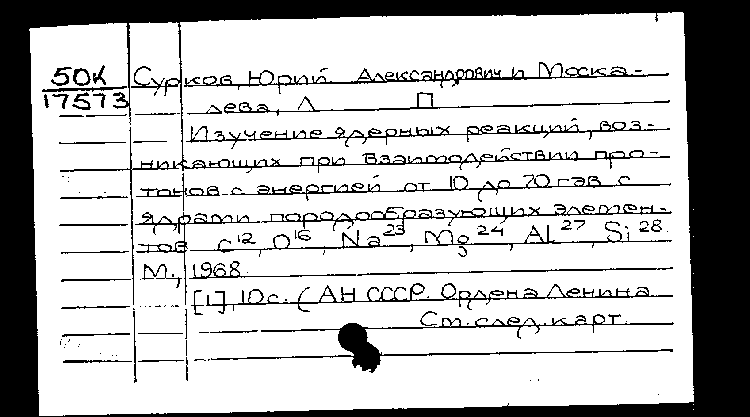 50К Сурков, Юрий Александрович и Моска-
17573 лева, Л. П.
Изучение ядерных реакций, воз-
никающих при взаимодействии про-
тонов с энергией от 10 до 70 гэв с
ядрами породообразующих элемен-
тов C¹², O¹⁶, Na²³, Mg²⁴, Al²⁷, Si²⁸.
М., 1968
[1], 10 с. (АН СССР. Ордена Ленина
См. след. карт.